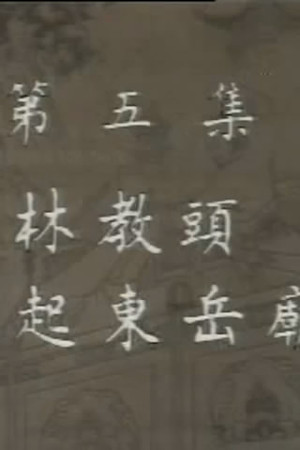 第五集
林教頭
起東岳廟